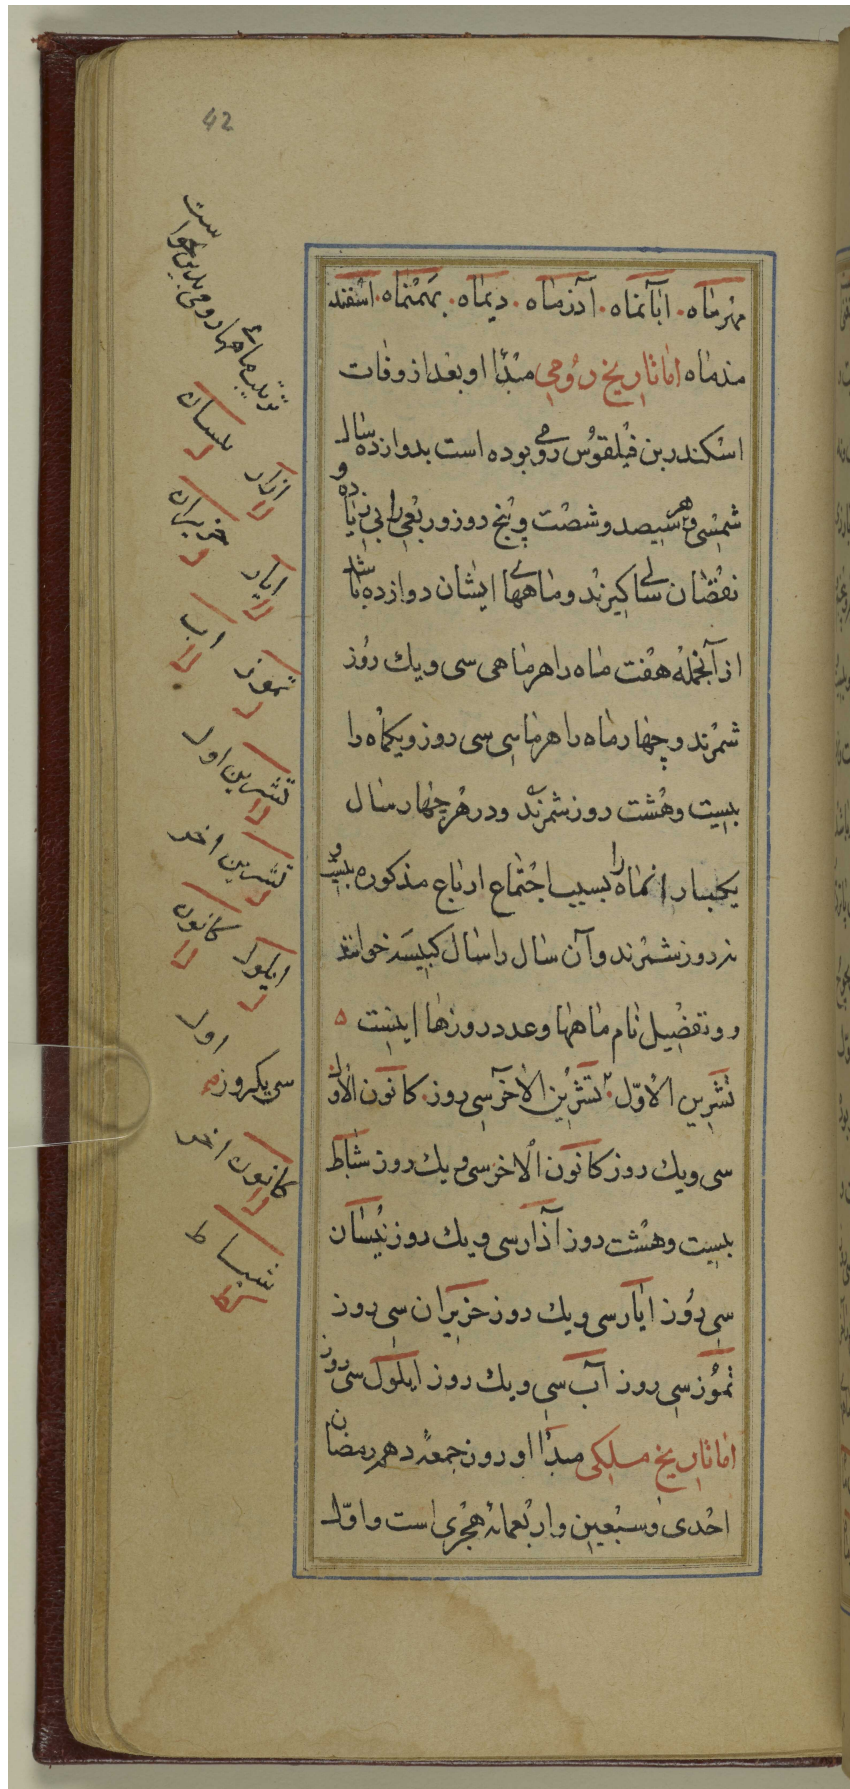 42
مهرماه. ابانماه. آذرماه. دیماه. بهمنماه. اسفند
مذماه اما تاریخ رومی مبدأ او بعد از وفات
اسکندر بن فیلقوس رومی بوده است بدوازده سال
شمسی و هر سیصد و شصت و پنج روز و ربعی را بی زیاده و
نقصان سالی گیرند و ماههای ایشان دوازده باشد
از آنجمله هفت ماه را هر ماهی سی و یك روز
شمرند و چهار ماه را هر ماهی سی روز و یکماه را
بیست و هشت روز شمرند و در هر چهار سال
یکبار انماه را بسبب اجتماع ارباع مذکوره بیست و
نه روز شمرند و آن سال را سال کبیسه خوانند
و و تفضیل نام ماهها و عدد روزها اینست ۵
تشرین الاول. تشرین الاخر سی روز. کانون الاول
سی و یك روز کانون الاخر سی و یك روز شباط
بیست و هشت روز آذار سی و یك روز نیسان
سی روز ایار سی و یك روز حزیران سی روز
تموز سی روز آب سی و یك روز ایلول سی روز
اما تاریخ ملکی مبدأ او روز جمعه دهم رمضان
احدی و سبعین و اربعمائه هجری است و اول
ترتیب ماهای رومی بدین نحو است
اذار لا
نیسان ل
ایار لا
حزیران ل
تموز
اب لا
تشرین اول لا
تشرین اخر ل
ایلول ل
کانون اول لا
سی یکروزه
کانون اخر لا
شباط کط